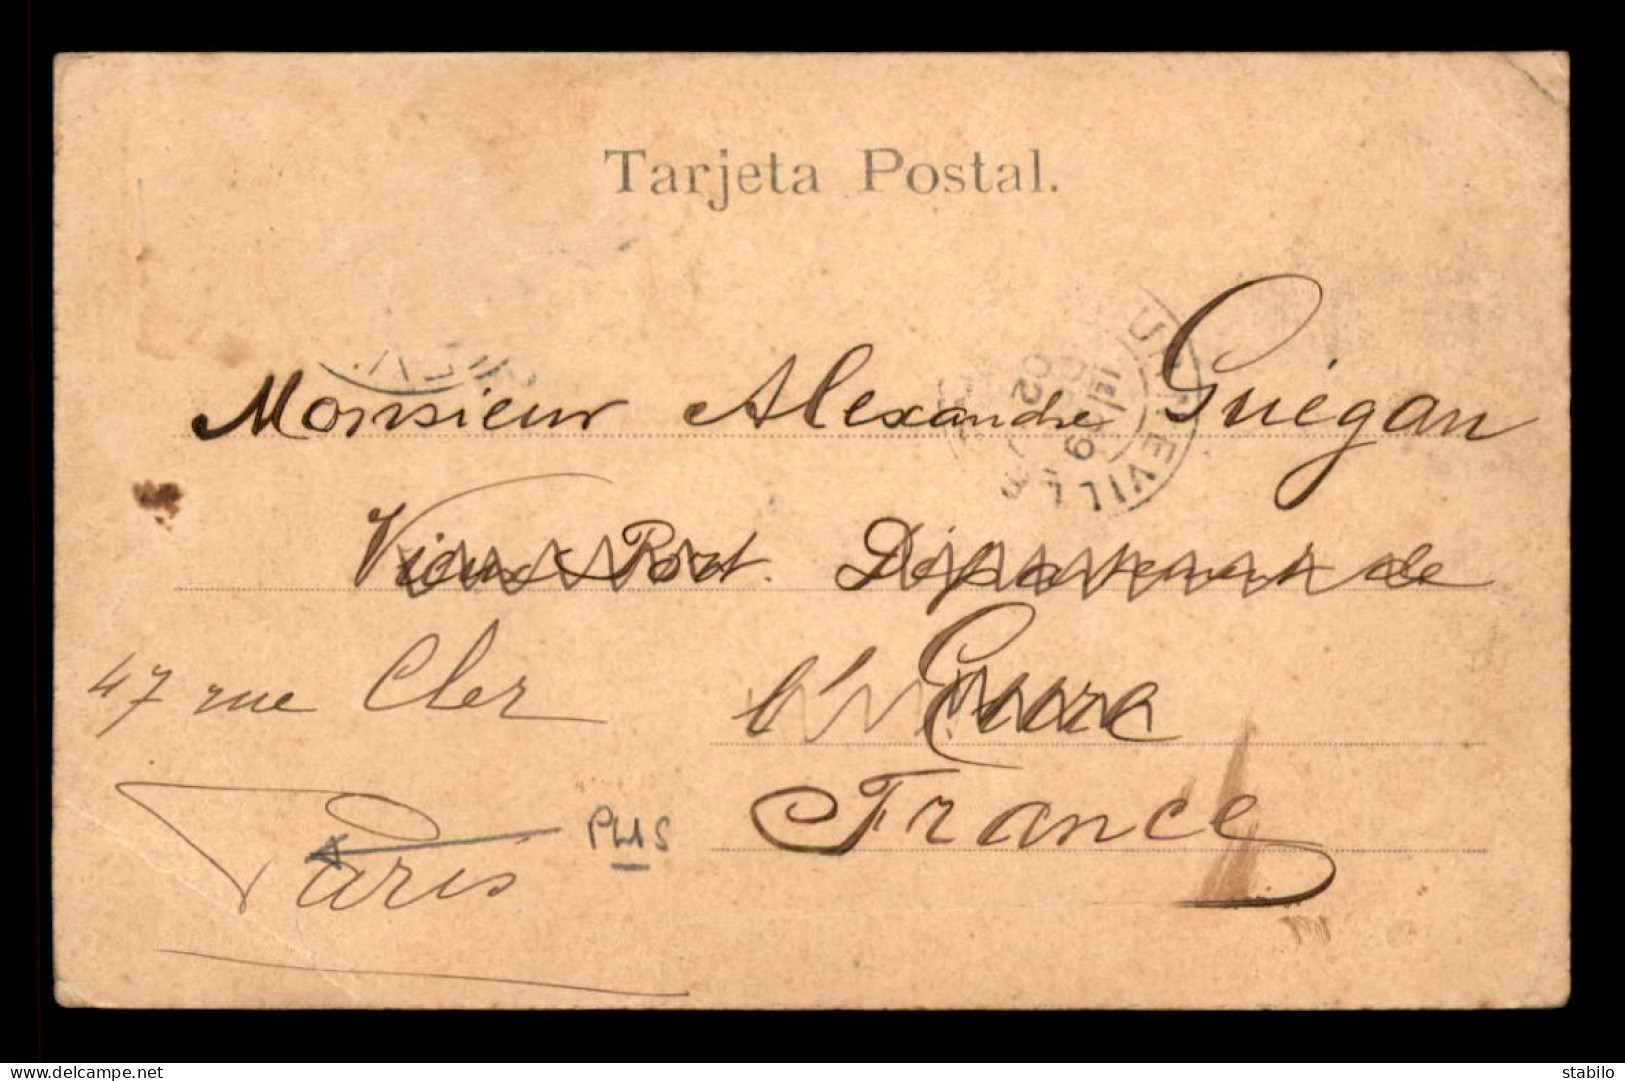 Tarjeta Postal.
Monsieur Alexandre Guégan
Vieux Port. Département de
47 rue Cler l'Eure
Paris PLUS France
www.delcampe.net stabilo